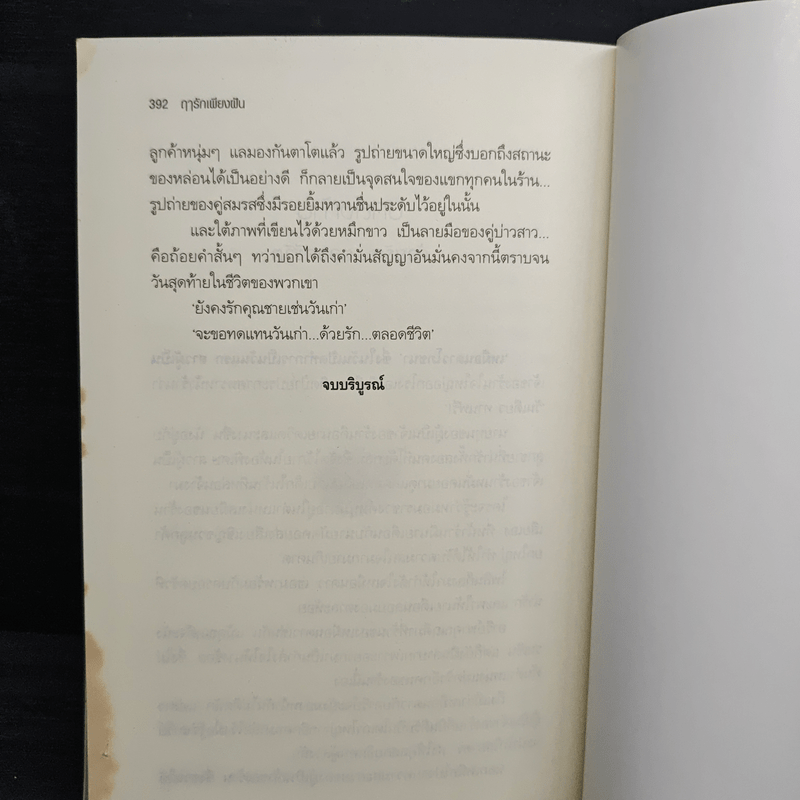 392 ฤๅรักเพียงฝัน
ลูกค้าหนุ่มๆ แลมองกันตาโตแล้ว รูปถ่ายขนาดใหญ่ซึ่งบอกถึงสถานะ
ของหล่อนได้เป็นอย่างดี ก็กลายเป็นจุดสนใจของแขกทุกคนในร้าน...
รูปถ่ายของคู่สมรสซึ่งมีรอยยิ้มหวานชื่นประดับไว้อยู่ในนั้น
และใต้ภาพที่เขียนไว้ด้วยหมึกขาว เป็นลายมือของคู่บ่าวสาว...
คือถ้อยคำสั้นๆ ทว่าบอกได้ถึงคำมั่นสัญญาอันมั่นคงจากนี้ตราบจน
วันสุดท้ายในชีวิตของพวกเขา
‘ยังคงรักคุณชายเช่นวันเก่า’
‘จะขอทดแทนวันเก่า...ด้วยรัก...ตลอดชีวิต’
จบบริบูรณ์